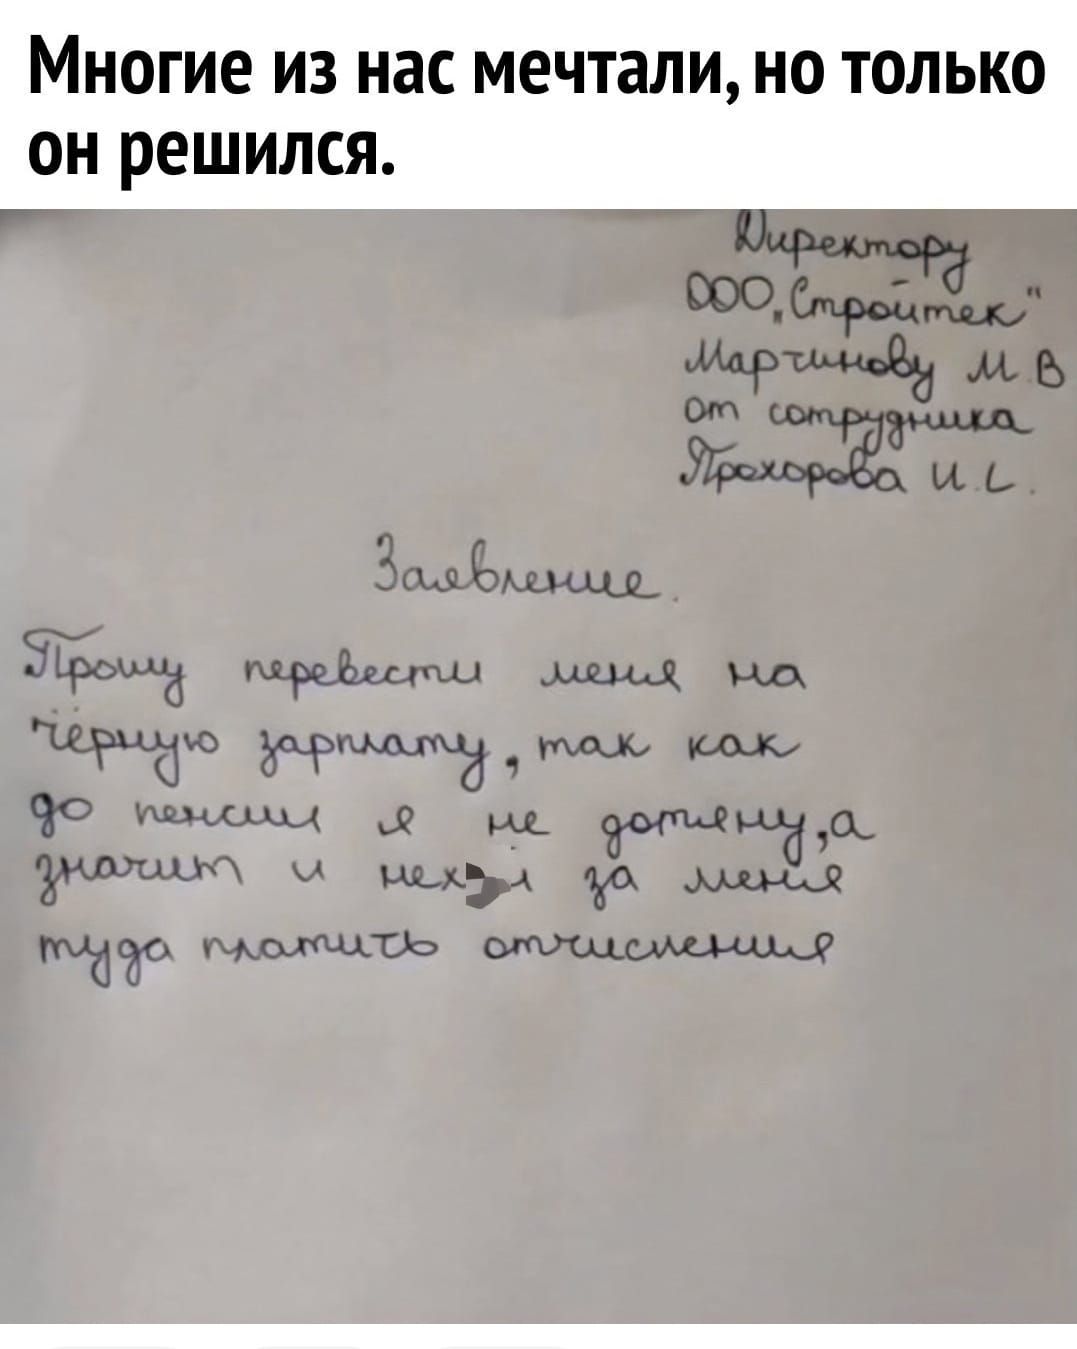 Многие из нас мечтали, но только
он решился.
Директору
ООО „Стройтек"
Марчинову М В
от сотрудника
Прохорова И.
Заявление.
Прошу перевести меня на
чёрную зарплату, так как
до пенсии я не дотяну, а
значит и за меня
туда платить отчисления